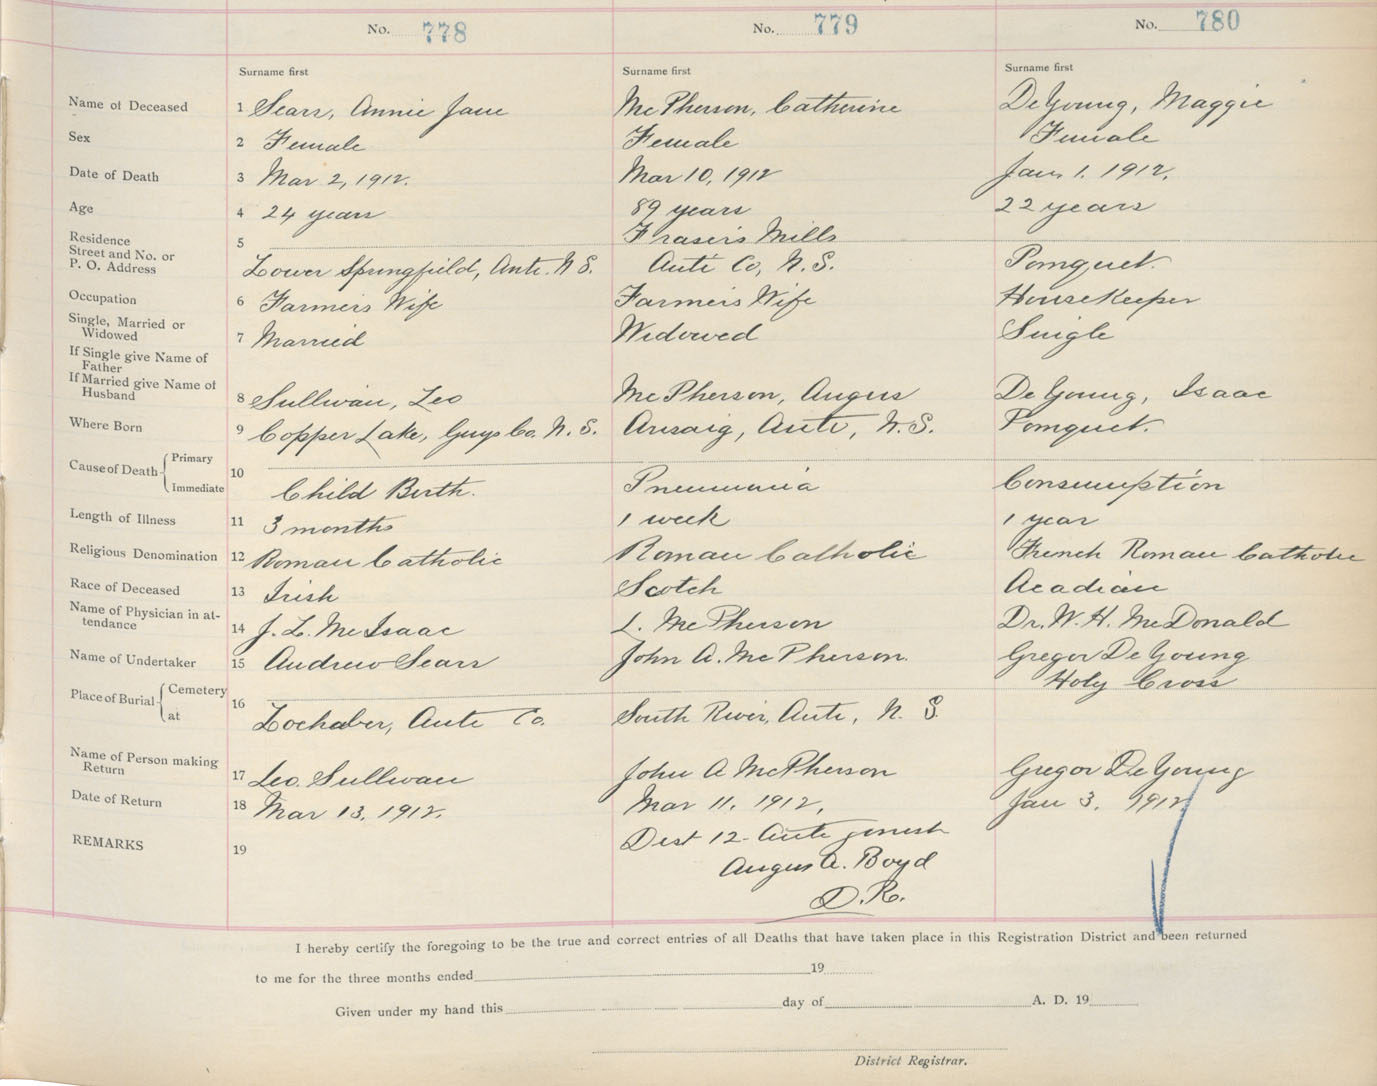 No. 778 No. 779 No. 780
Surname first Surname first Surname first
Name of Deceased 1 Sears, Annie Jane McPherson, Catherine DeYoung, Maggie
Sex 2 Female Female Female
Date of Death 3 Mar 2, 1912. Mar 10, 1912 Jan 1. 1912.
Age 4 24 years 89 years 22 years
Residence 5 Frasers Mills
Street and No. or
P. O. Address Lower Springfield, Ante. N S. Ante Co, N. S. Pomquet.
Occupation 6 Farmers Wife Farmers Wife HouseKeeper
Single, Married or
Widowed 7 Married Widowed Single
If Single give Name of
Father
If Married give Name of
Husband 8 Sullivan, Leo McPherson, Angus De Young, Isaac
Where Born 9 Copper Lake, Guys Co. N. S. Arisaig, Ante, N.S. Pomquet.
Cause of Death Primary 10
Immediate Child Birth. Pneumonia Consumption
Length of Illness 11 3 months 1 week 1 year
Religious Denomination 12 Roman Catholic Roman Catholic French Roman Catholic
Race of Deceased 13 Irish Scotch Acadian
Name of Physician in at-
tendance 14 J. L. McIsaac L. McPherson Dr. W. H. McDonald
Name of Undertaker 15 Andrew Sears John A. McPherson. Gregor DeYoung
Place of Burial Cemetery 16 Holy Cross
at Lochaber, Ante Co. South River, Ante, N. S.
Name of Person making
Return 17 Leo. Sullivan John A McPherson Gregor DeYoung
Date of Return 18 Mar 13. 1912. Mar 11. 1912, Jan 3. 1912
REMARKS 19 Dist 12- Antegonish
Angus A. Boyd
D.R.
I hereby certify the foregoing to be the true and correct entries of all Deaths that have taken place in this Registration District and been returned
to me for the three months ended 19
Given under my hand this day of A. D. 19
District Registrar.